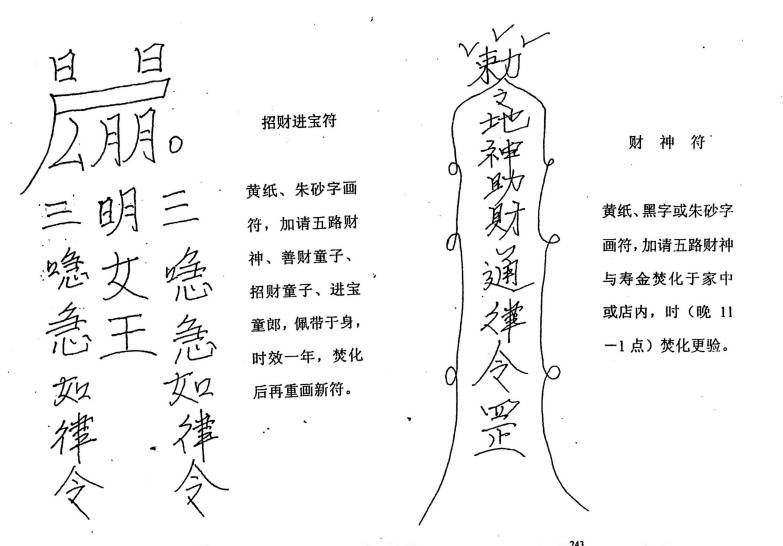 日 日
厶朋。
三喼急如律令
明女王
三喼急如律令
招财进宝符
黄纸、朱砂字画
符，加请五路财
神、善财童子、
招财童子、进宝
童郎，佩带于身，
时效一年，焚化
后再重画新符。
勅
地神助財通律令罡
财 神 符
黄纸、黑字或朱砂字
画符，加请五路财神
与寿金焚化于家中
或店内，吋（晚 11
－1 点）焚化更验。
243